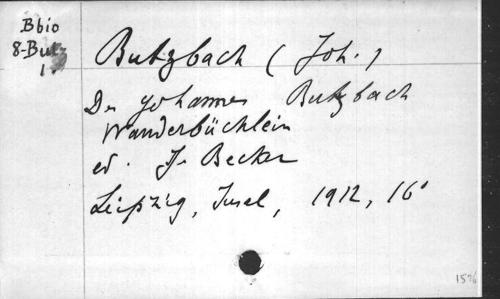 Bbio
8-Butz
1.
Butzbach (Joh.)
Des Johannes Butzbach
Wanderbüchlein
ed. J. Becker
Leipzig, Insel, 1912, 16°